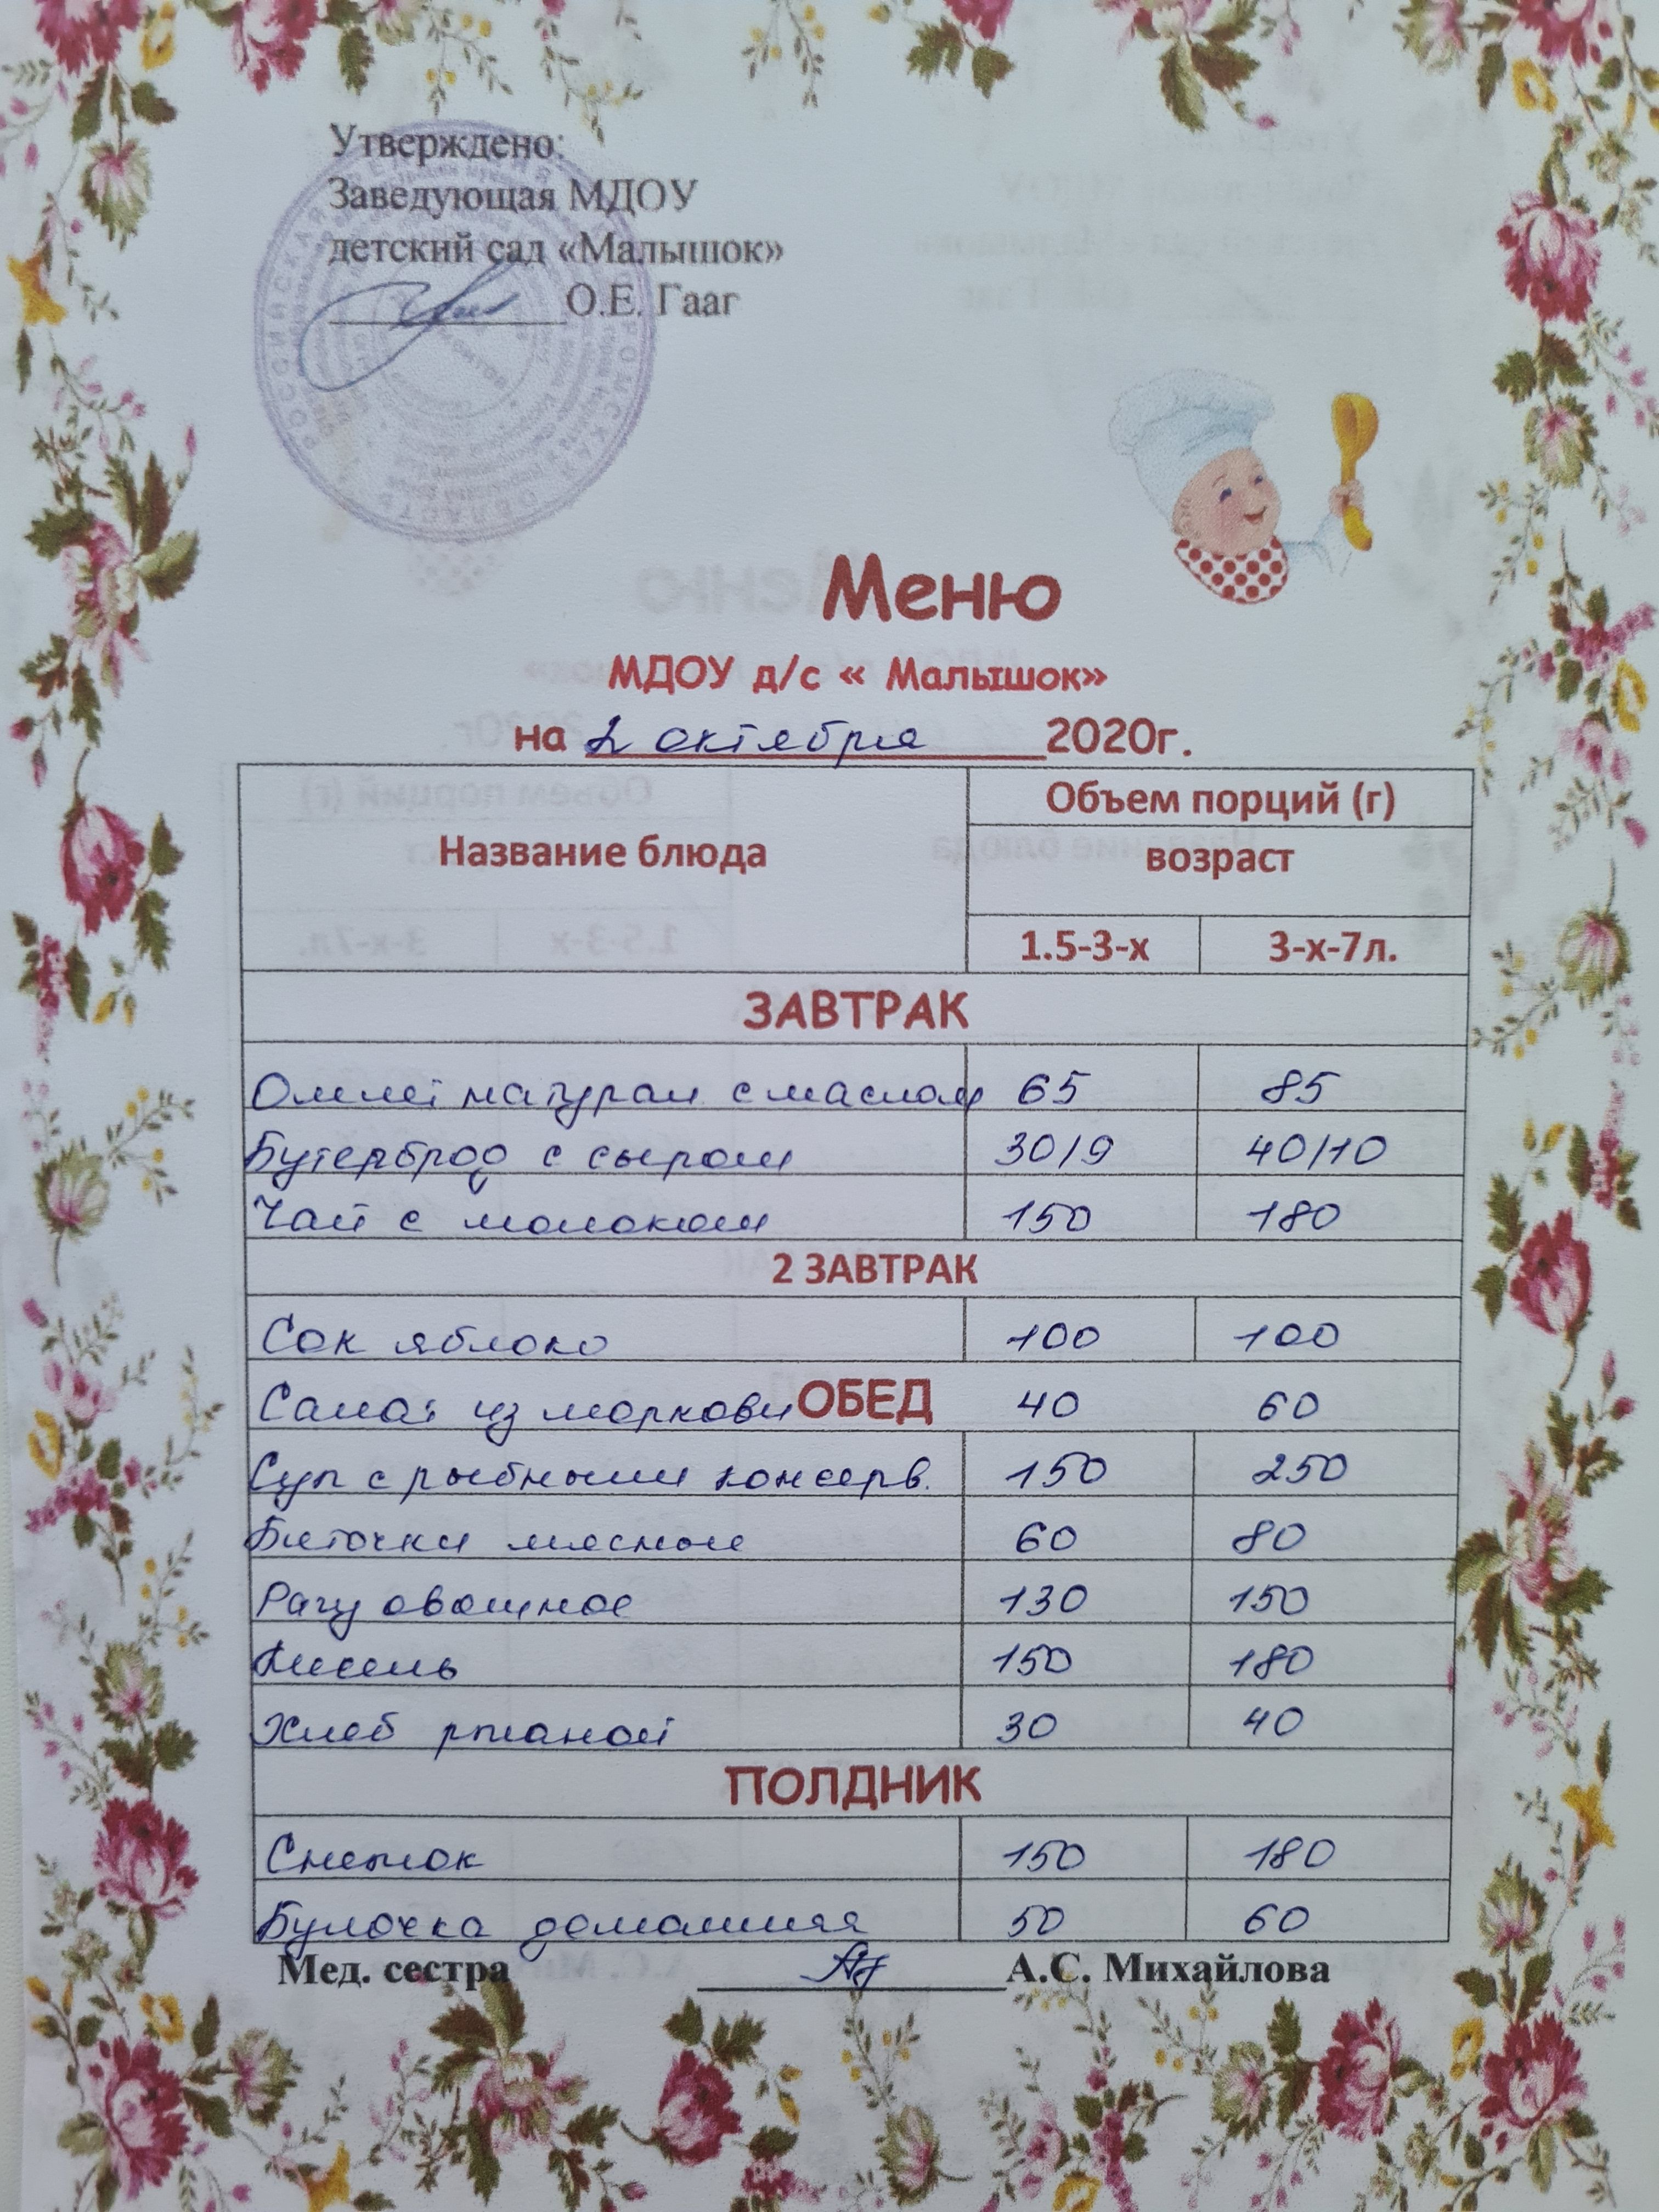 Утверждено:
Заведующая МДОУ
детский сад «Малышок»
О.Е. Гааг
РОССИЙСКАЯ КОСТРОМСКАЯ ОБЛАСТЬ
Меню
МДОУ д/с « Малышок»
на 2 октября 2020г.
Название блюда
Объем порций (г)
возраст
1.5-3-х 3-х-7л.
ЗАВТРАК
Омлет натурал с маслом 65 85
Бутерброд с сыром 30/9 40/10
Чай с молоком 150 180
2 ЗАВТРАК
Сок яблоко 100 100
Салат из моркови ОБЕД 40 60
Суп с рыбными консерв. 150 250
Биточки мясные 60 80
Рагу овощное 130 150
Кисель 150 180
Хлеб ржаной 30 40
ПОЛДНИК
Снежок 150 180
Булочка домашняя 50 60
Мед. сестра А.С. Михайлова